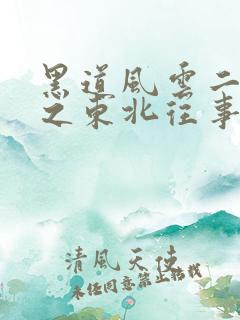 黑道風雲二
之東北往事
清風天使
未经同意禁止转载